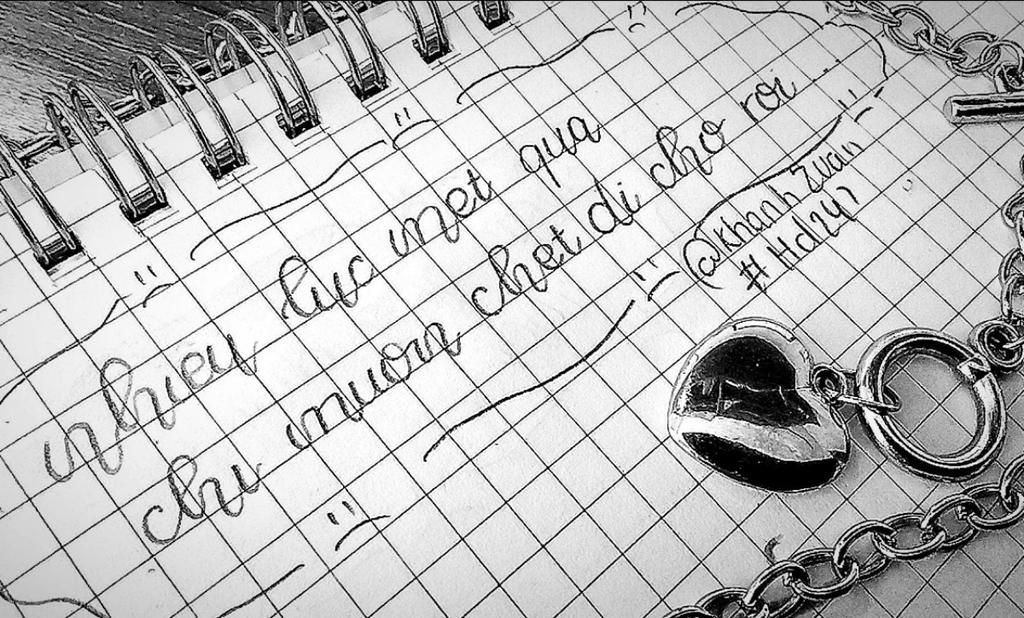 nhieu luc met qua
chi muon chet di cho roi...
@khanh Zuan
#Hd247